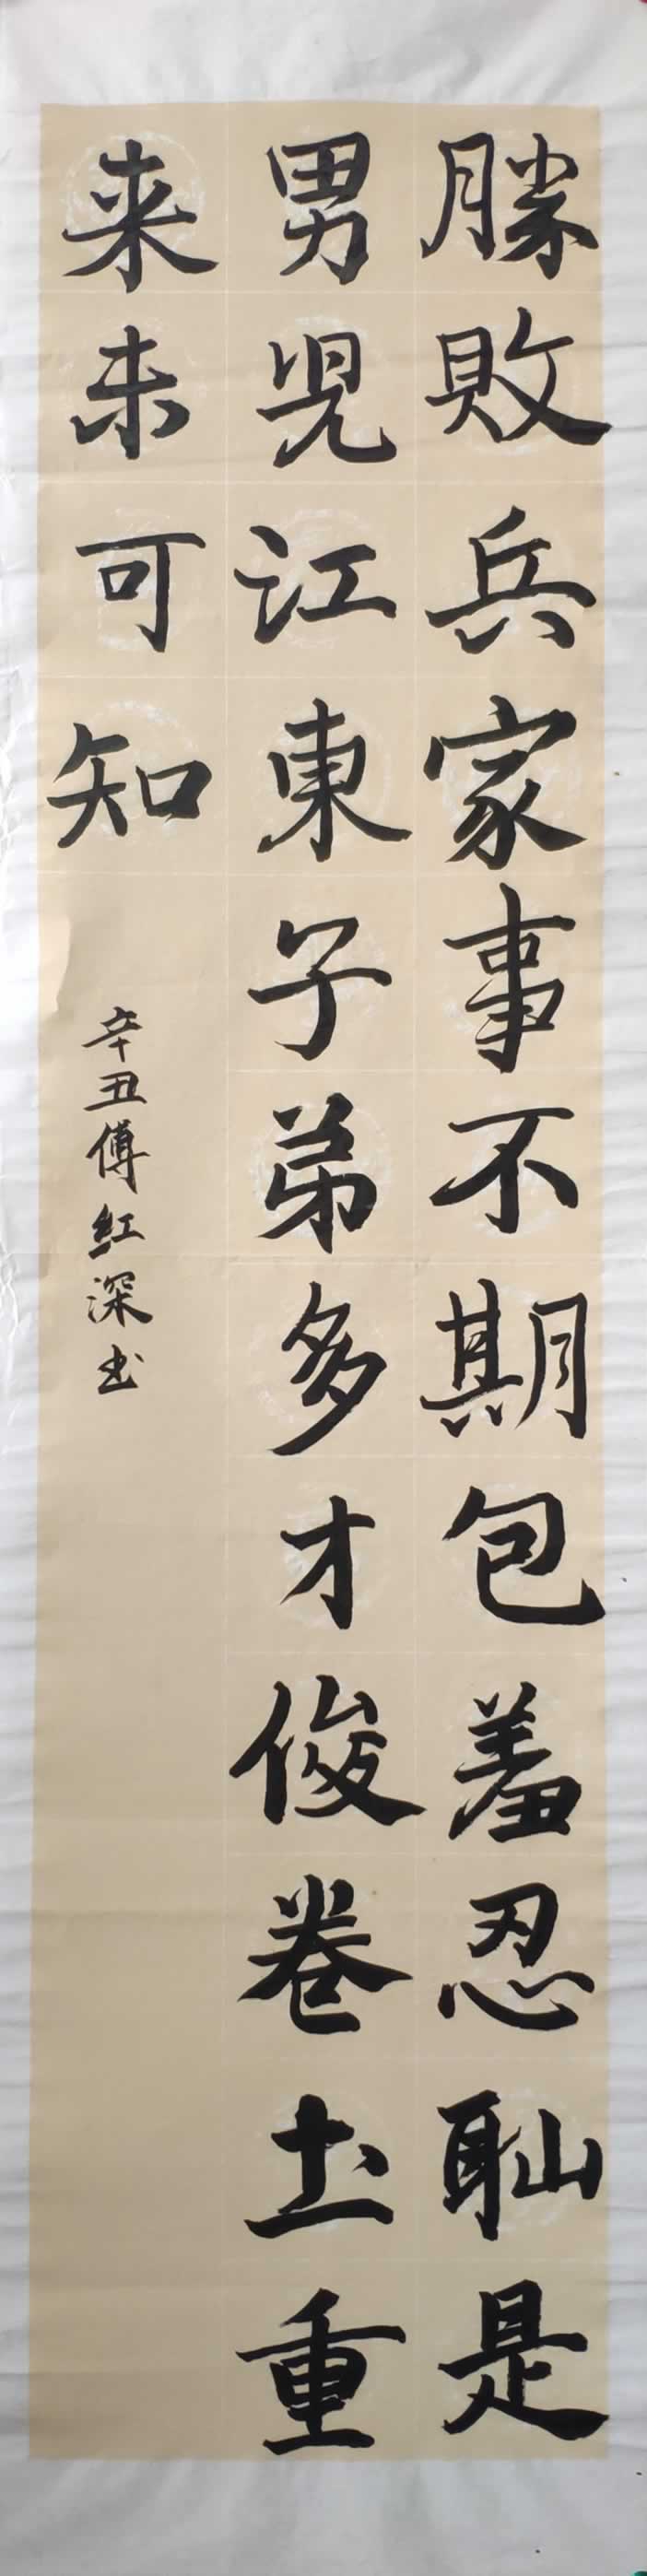 勝敗兵家事不期包羞忍耻是
男児江東子弟多才俊卷土重
来未可知
辛丑傅紅深书